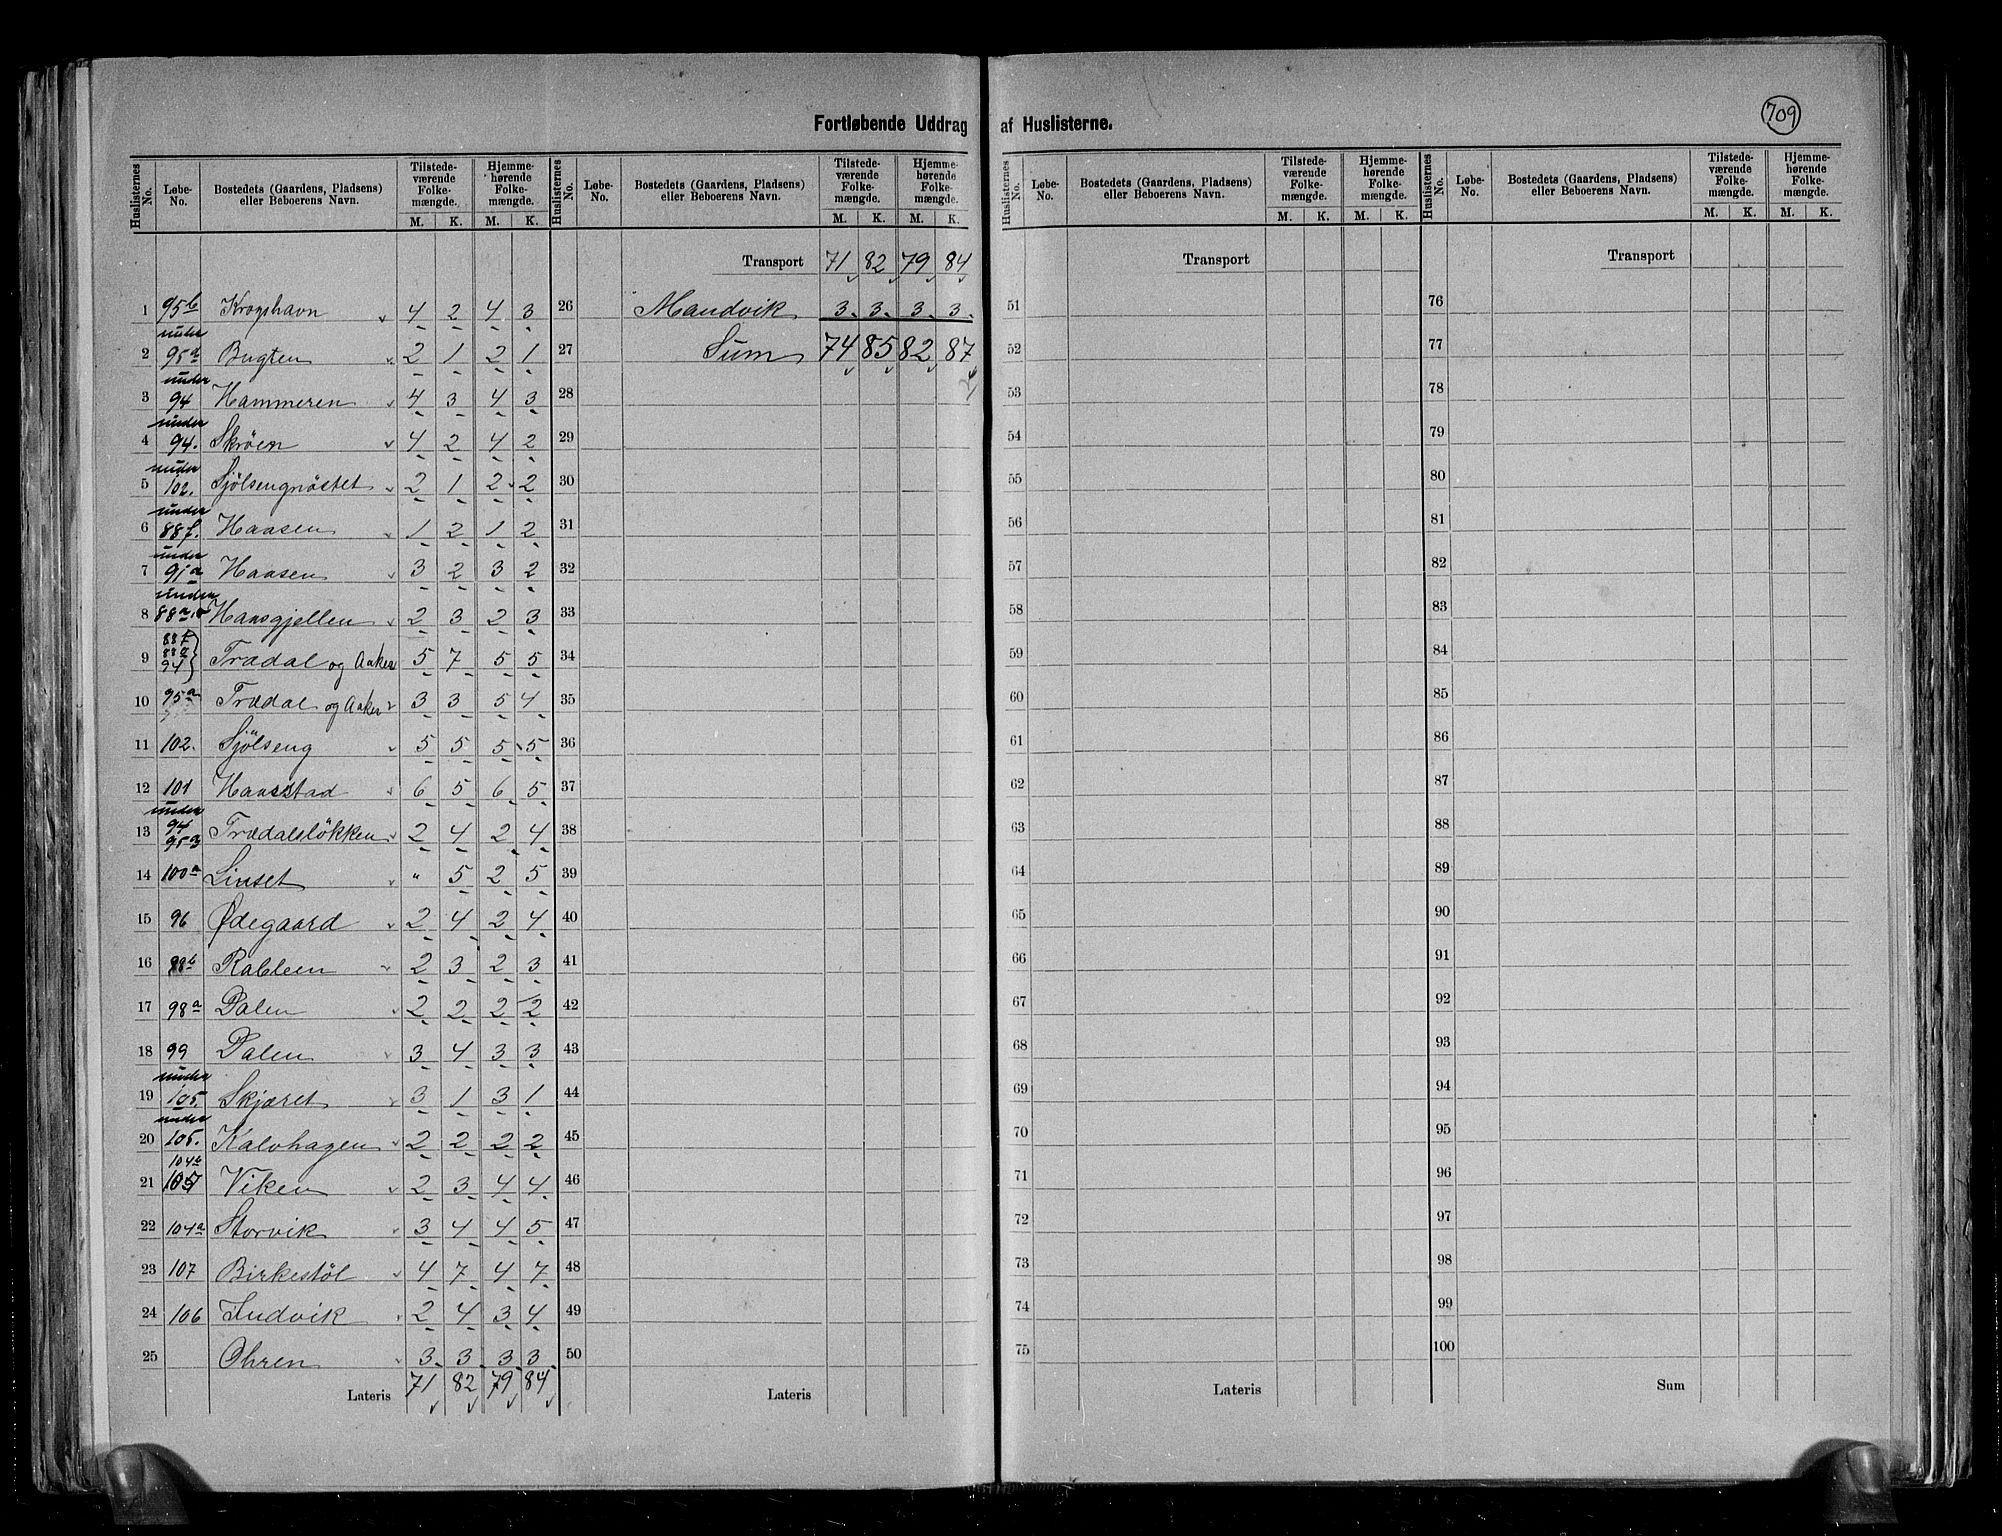 709
Fortløbende Uddrag af Huslisterne.
Huslisternes No. Løbe-No. Bostedets (Gaardens, Pladsens) eller Beboerens Navn. Tilstedeværende Folkemængde. M. K. Hjemmehørende Folkemængde. M. K.
Huslisternes No. Løbe-No. Bostedets (Gaardens, Pladsens) eller Beboerens Navn. Tilstedeværende Folkemængde. M. K. Hjemmehørende Folkemængde. M. K.
1 95b Krogshavn 4 2 4 3
2 under 95a Bugten 2 1 2 1
3 under 94 Hammeren 4 3 4 3
4 under 94. Skröen 4 2 4 2
5 under 102. Sjölsengnöstet 2 1 2 2
6 under 88f. Haasen 1 2 1 2
7 under 91a Haasen 3 2 3 2
8 under 88a Haasgjellen 2 3 2 3
9 88f 88a 94 Trædal og Aaker 5 7 5 5
10 95a Trædal og Aaker 3 3 5 4
11 102. Sjölseng 5 5 5 5
12 101 Haasstad 6 5 6 5
13 under 94 95a Trædalslökken 2 4 2 4
14 100a Linset " 5 2 5
15 96 Ødegaard 2 4 2 4
16 98b Rableen 2 3 2 3
17 98a Dalen 2 2 2 2
18 99 Dalen 3 4 3 3
19 under 105. Skjæret 3 1 3 1
20 under 105. Kalvhagen 2 2 2 2
21 104b 105 Viken 2 3 4 4
22 104a Storvik 3 4 4 5
23 107 Birkestöl 4 7 4 7
24 106 Indvik 2 4 3 4
25 Ohren 3 3 3 3
Lateris 71 82 79 84
Transport 71 82 79 84
26 Mandvik 3 3 3 3
27 Sum 74 85 82 87
28
29
30
31
32
33
34
35
36
37
38
39
40
41
42
43
44
45
46
47
48
49
50
Lateris
Huslisternes No. Løbe-No. Bostedets (Gaardens, Pladsens) eller Beboerens Navn. Tilstedeværende Folkemængde. M. K. Hjemmehørende Folkemængde. M. K.
Transport
51
52
53
54
55
56
57
58
59
60
61
62
63
64
65
66
67
68
69
70
71
72
73
74
75
Lateris
Huslisternes No. Løbe-No. Bostedets (Gaardens, Pladsens) eller Beboerens Navn. Tilstedeværende Folkemængde. M. K. Hjemmehørende Folkemængde. M. K.
Transport
76
77
78
79
80
81
82
83
84
85
86
87
88
89
90
91
92
93
94
95
96
97
98
99
100
Sum